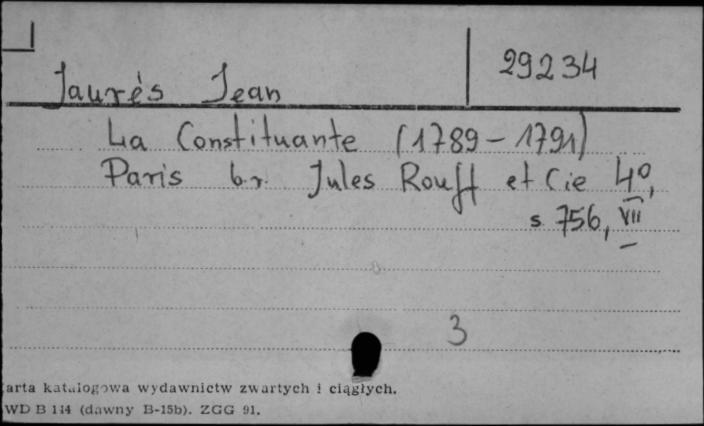 29234
Jaurés Jean
La Constituante (1789-1791)
Paris b.r. Jules Rouff et Cie 4º,
s 756, VII
3
arta katalogowa wydawnictw zwartych i ciągłych.
WD B 114 (dawny B-15b). ZGG 91.